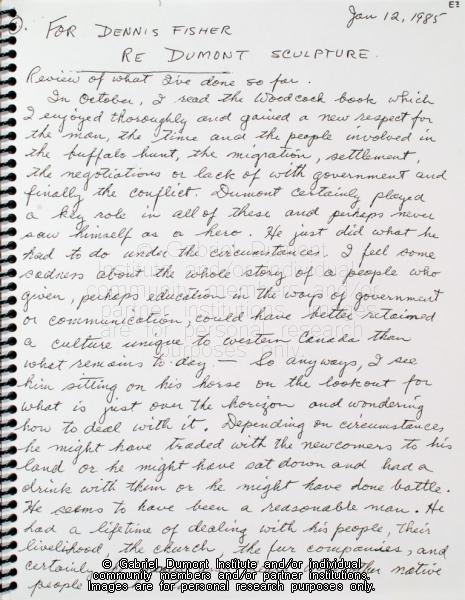 E2
Jan 12, 1985
FOR DENNIS FISHER
RE DUMONT SCULPTURE.
Review of what I've done so far.
In October, I read the Woodcock book which
I enjoyed thoroughly and gained a new respect for
the man, the time and the people involved in
the buffalo hunt, the migration, settlement,
the negotiations or lack of with government and
finally the conflict. Dumont certainly played
a key role in all of these and perhaps never
saw himself as a hero. He just did what he
had to do under the circumstances. I feel some
sadness about the whole story of a people who
given, perhaps education in the ways of government
or communication, could have better retained
a culture unique to western Canada than
what remains to day. — So anyways, I see
him sitting on his horse on the lookout for
what is just over the horizon and wondering
how to deal with it. Depending on circumstances
he might have traded with the newcomers to his
land or he might have sat down and had a
drink with them or he might have done battle.
He seems to have been a reasonable man. He
had a lifetime of dealing with his people, their
livelihood, the church, the fur companies, and
certainly other native
people
© Gabriel Dumont Institute and/or individual
community members and/or partner institutions.
Images are for personal research purposes only.